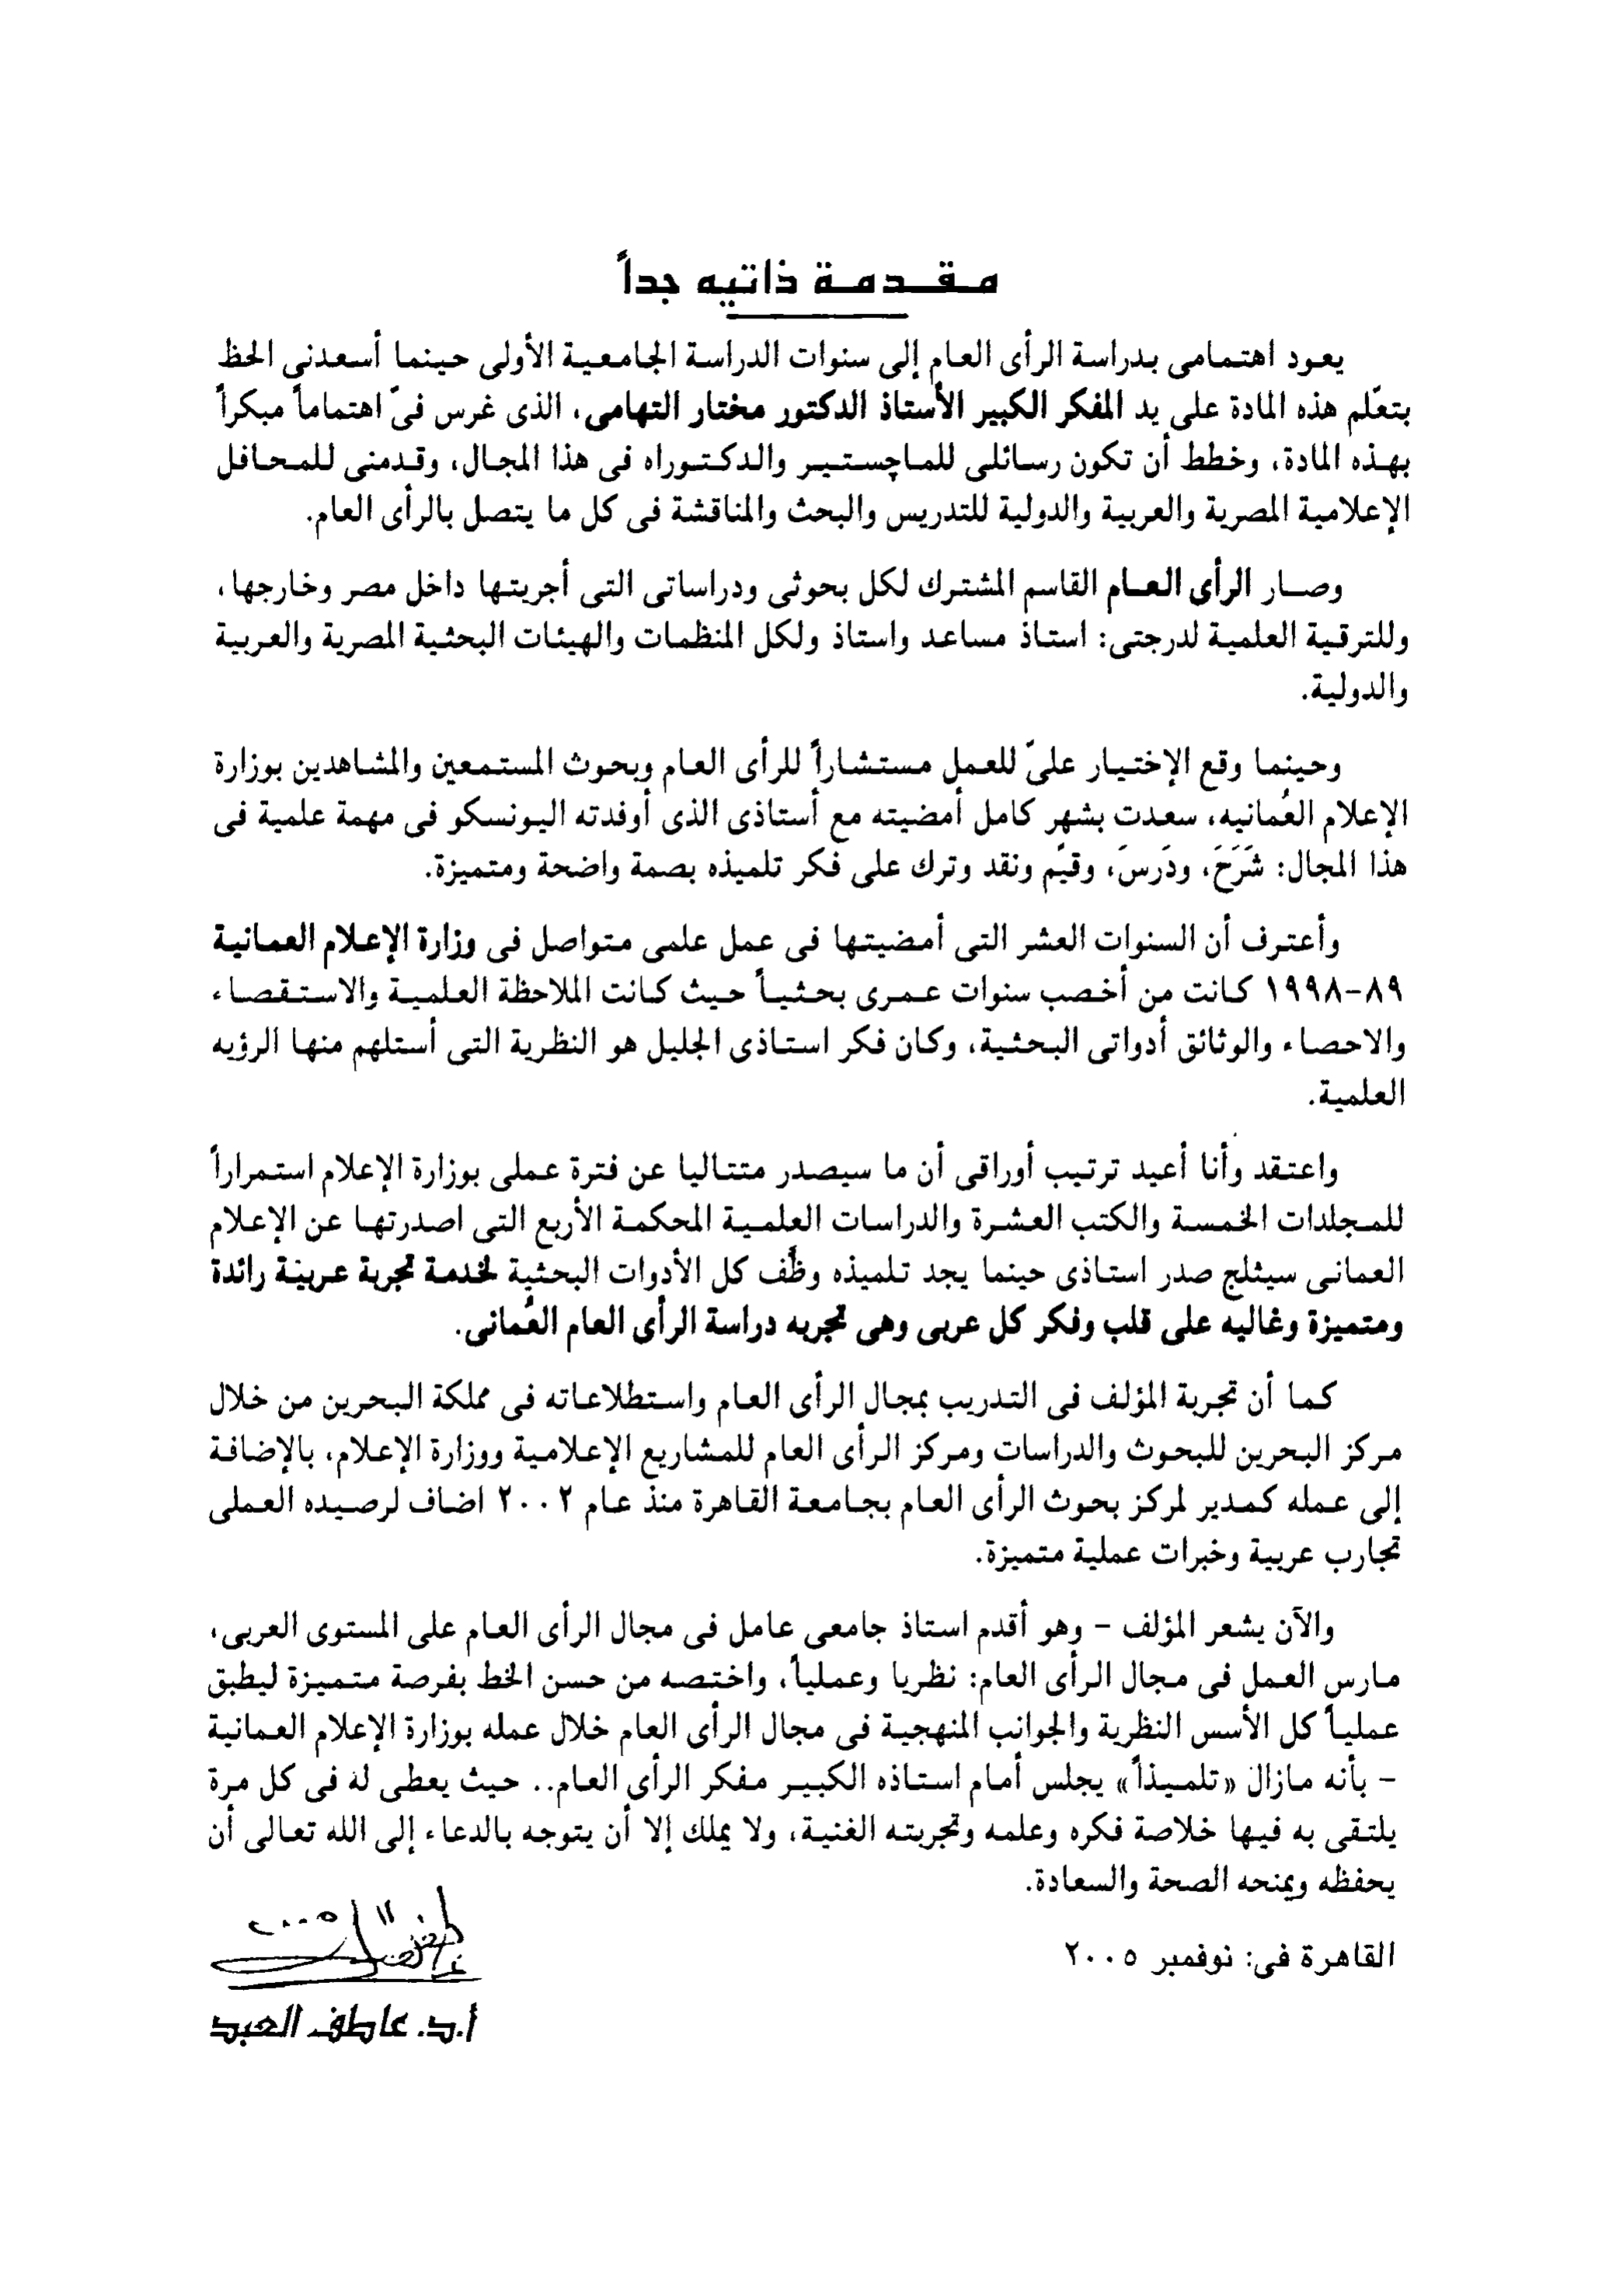 مقدمة ذاتيه جداً
يعود اهتمامى بدراسة الرأى العام إلى سنوات الدراسة الجامعية الأولى حينما أسعدنى الحظ
بتعّلم هذه المادة على يد المفكر الكبير الأستاذ الدكتور مختار التهامى، الذى غرس فىّ اهتماماً مبكراً
بهذه المادة، وخطط أن تكون رسائلى للماچستير والدكتوراه فى هذا المجال، وقدمنى للمحافل
الإعلامية المصرية والعربية والدولية للتدريس والبحث والمناقشة فى كل ما يتصل بالرأى العام.
وصار الرأى العام القاسم المشترك لكل بحوثى ودراساتى التى أجريتها داخل مصر وخارجها،
وللترقية العلمية لدرجتى: استاذ مساعد واستاذ ولكل المنظمات والهيئات البحثية المصرية والعربية
والدولية.
وحينما وقع الإختيار علىّ للعمل مستشاراً للرأى العام وبحوث المستمعين والمشاهدين بوزارة
الإعلام العُمانيه، سعدت بشهر كامل أمضيته مع أستاذى الذى أوفدته اليونسكو فى مهمة علمية فى
هذا المجال: شَرَحَ، ودَرسَ، وقيَّم ونقد وترك على فكر تلميذه بصمة واضحة ومتميزة.
وأعترف أن السنوات العشر التى أمضيتها فى عمل علمى متواصل فى وزارة الإعلام العمانية
٨٩-١٩٩٨ كانت من أخصب سنوات عمرى بحثياً حيث كانت الملاحظة العلمية والاستقصاء
والاحصاء والوثائق أدواتى البحثية، وكان فكر استاذى الجليل هو النظرية التى أستلهم منها الرؤيه
العلمية.
واعتقد وأنا أعيد ترتيب أوراقى أن ما سيصدر متتاليا عن فترة عملى بوزارة الإعلام استمراراً
للمجلدات الخمسة والكتب العشرة والدراسات العلمية المحكمة الأربع التى اصدرتها عن الإعلام
العمانى سيثلج صدر استاذى حينما يجد تلميذه وظَّف كل الأدوات البحثية لخدمة تجربة عربية رائدة
ومتميزة وغاليه على قلب وفكر كل عربى وهى تجربه دراسة الرأى العام العُمانى.
كما أن تجربة المؤلف فى التدريب بمجال الرأى العام واستطلاعاته فى مملكة البحرين من خلال
مركز البحرين للبحوث والدراسات ومركز الرأى العام للمشاريع الإعلامية ووزارة الإعلام، بالإضافة
إلى عمله كمدير لمركز بحوث الرأى العام بجامعة القاهرة منذ عام ٢٠٠٢ اضاف لرصيده العملى
تجارب عربية وخبرات عملية متميزة.
والآن يشعر المؤلف - وهو أقدم استاذ جامعى عامل فى مجال الرأى العام على المستوى العربى،
مارس العمل فى مجال الرأى العام: نظريا وعملياً، واختصه من حسن الخط بفرصة متميزة ليطبق
عملياً كل الأسس النظرية والجوانب المنهجية فى مجال الرأى العام خلال عمله بوزارة الإعلام العمانية
- بأنه مازال «تلميذاً» يجلس أمام استاذه الكبير مفكر الرأى العام.. حيث يعطى له فى كل مرة
يلتقى به فيها خلاصة فكره وعلمه وتجربته الغنية، ولا يملك إلا أن يتوجه بالدعاء إلى الله تعالى أن
يحفظه ويمنحه الصحة والسعادة.
القاهرة فى: نوفمبر ٢٠٠٥
أ.د. عاطف العبد